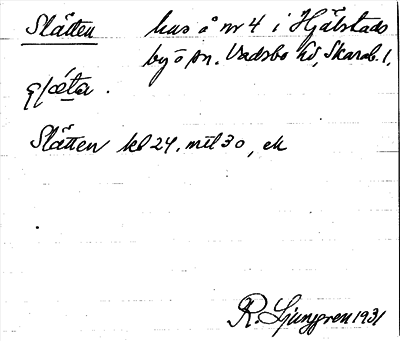 Slätten hus å nr 4 i Hjälstads
by o sn. Vadsbo hd, Skarab. l.
Slätten kbl 24. mtl 30, ek
R. Ljunggren 1931